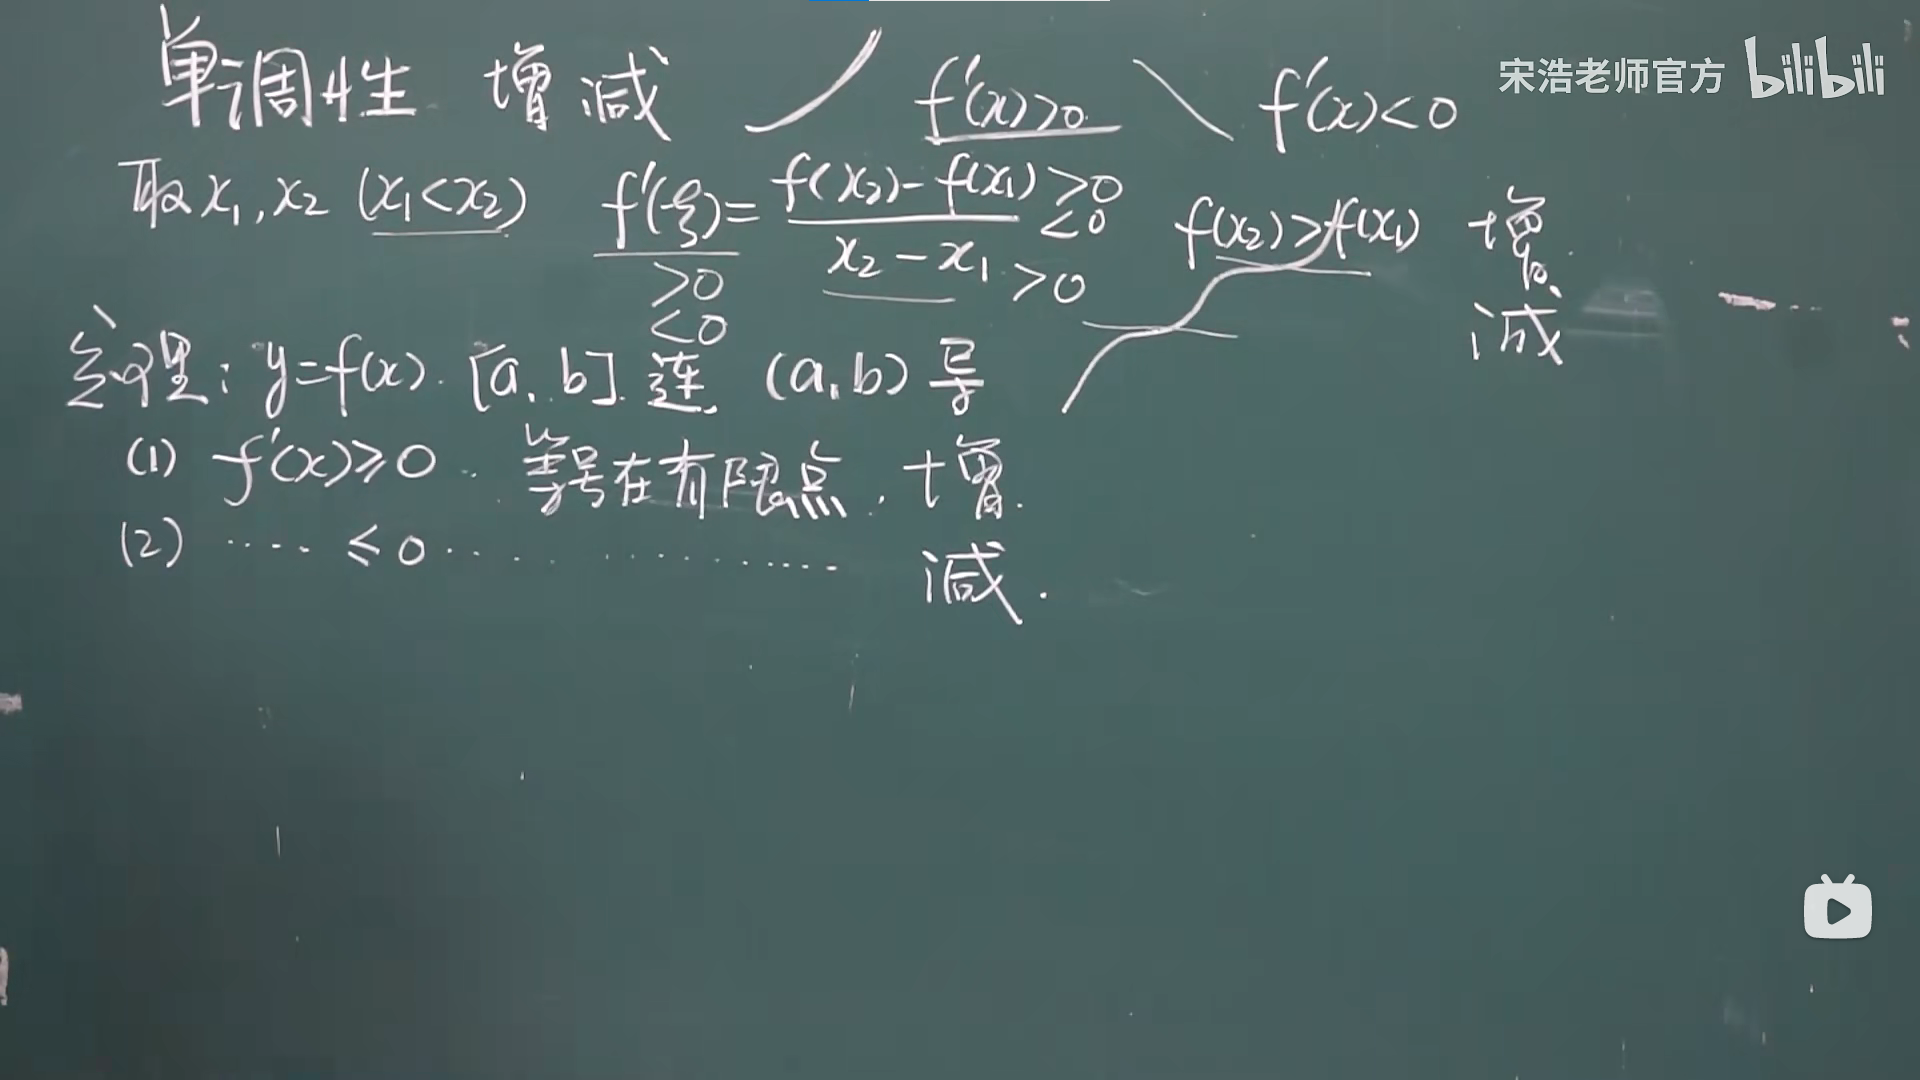 单调性 增 减 f'(x)>0 f'(x)<0
宋浩老师官方 bilibili
取x₁,x₂ (x₁<x₂) f'(ξ)= f(x₂)-f(x₁) >0
<0
x₂-x₁ >0
f(x₂)>f(x₁) 增
>0
<0
减
定理: y=f(x). [a,b] 连 (a,b) 导
(1) f'(x)≥0 . 等号在有限点, 增.
(2) ···· ≤0 ············ 减.